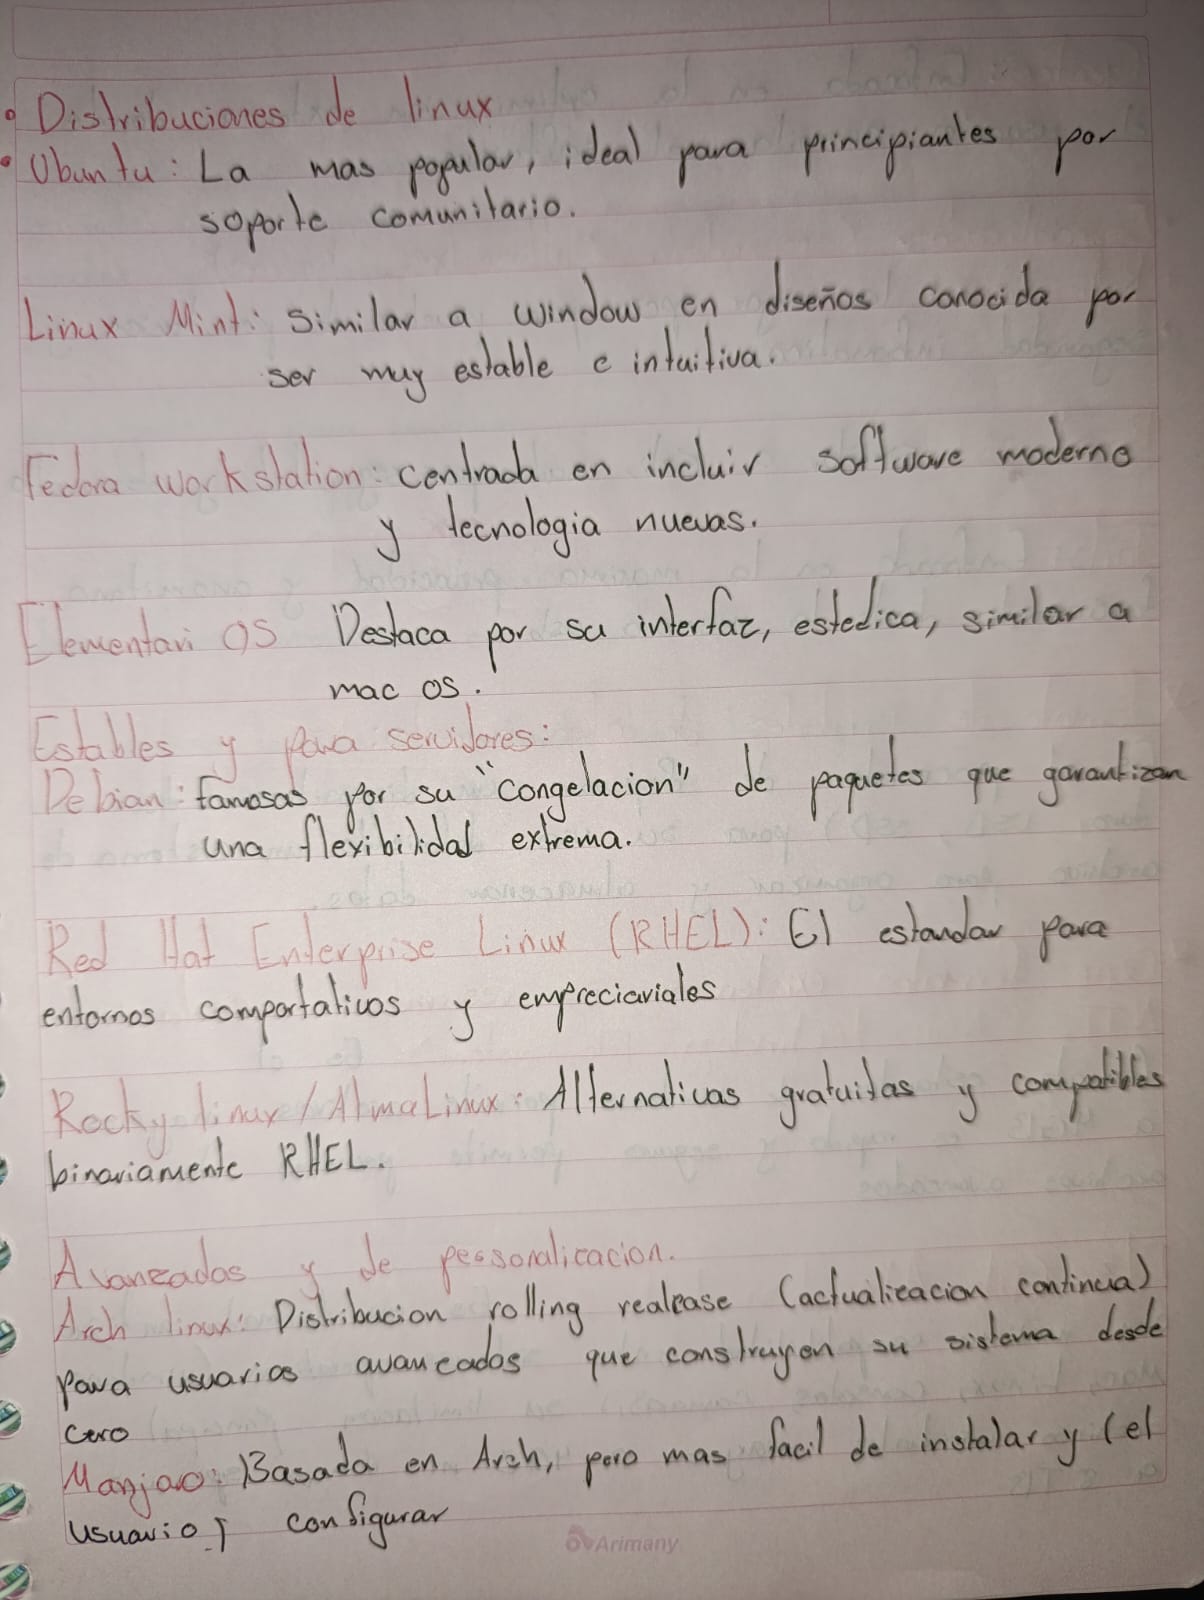 • Distribuciones de linux
• Ubuntu: La mas popular, ideal para principiantes por
soporte comunitario.
Linux Mint: Similar a window en diseños conocida por
ser muy estable e intuitiva.
Fedora workstation: centrada en incluir software moderno
y tecnologia nuevas.
Elementari OS Destaca por su interfaz, estedica, similar a
mac os.
Estables y para servidores:
Debian: famosas por su "congelacion" de paquetes que garantizan
una flexibilidad extrema.
Red Hat Enterprise Linux (RHEL): El estandar para
entornos comportativos y empreciariales
Rocky linux / AlmaLinux: Alternativas gratuitas y compatibles
binariamente RHEL.
Avanzados y de pessonalizacion.
Arch linux: Distribucion rolling realease (actualizacion continua)
para usuarios avanzados que construyen su sistema desde
cero
Manjao: Basada en Arch, pero mas facil de instalar y (el
usuario) configurar
Arimany